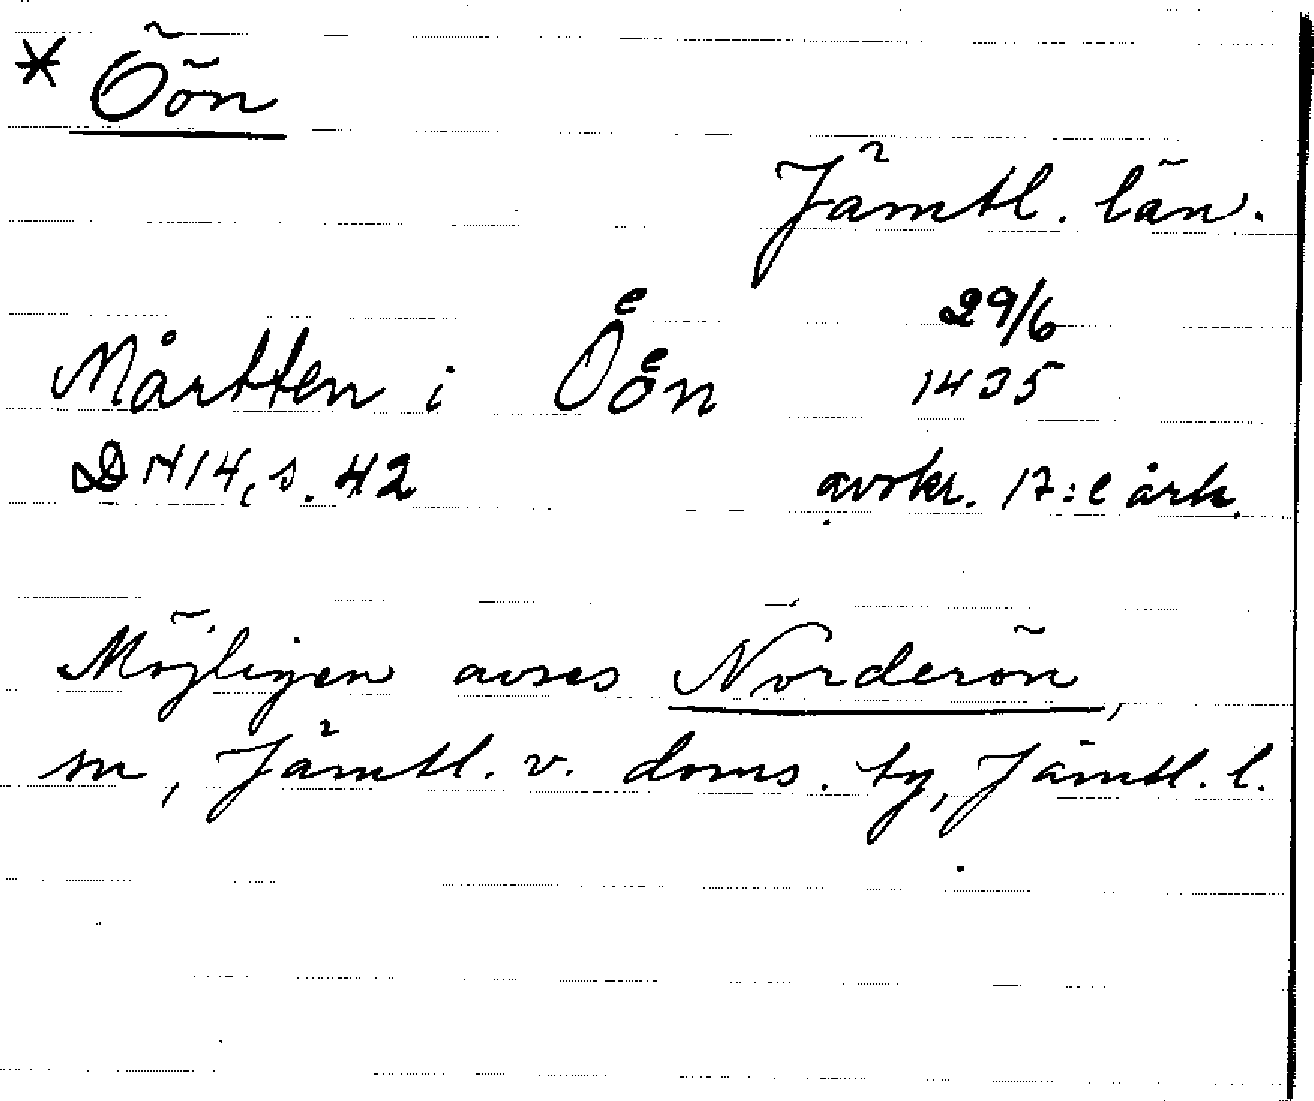 * Öön
Jämtl. län.
29/6
Mårtten i Oͤoͤn 1435
DN 14, s. 42 avskr. 17:e årh.
Möjligen avses Norderön,
sn, Jämtl. v. doms. tg, Jämtl. l.